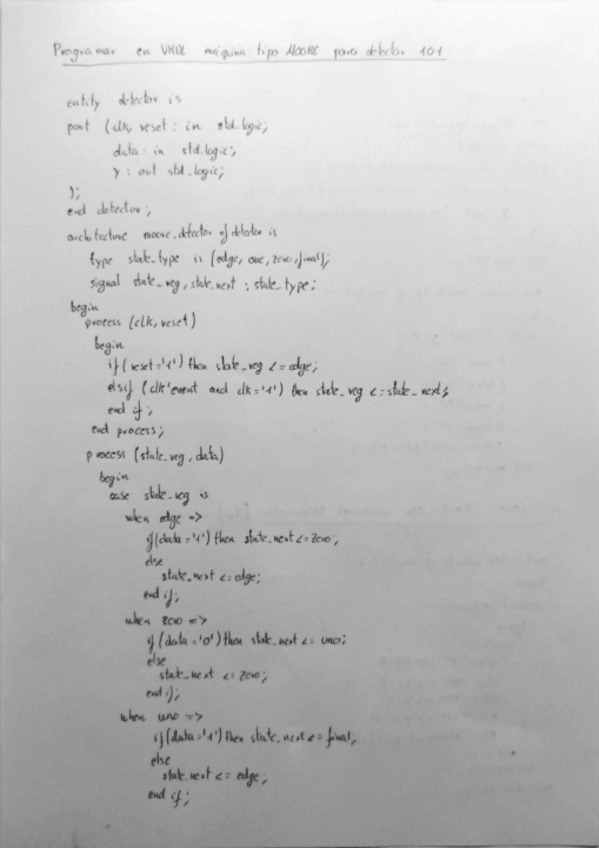 Programar en VHDL máquina tipo MOORE para detector 101
entity detector is
port (clk, reset : in std_logic;
data : in std_logic;
y : out std_logic;
);
end detector;
architecture moore_detector of detector is
type state_type is (edge, one, zero, final);
signal state_reg, state_next : state_type;
begin
process (clk, reset)
begin
if (reset='1') then state_reg <= edge;
elsif (clk'event and clk='1') then state_reg <= state_next;
end if;
end process;
process (state_reg, data)
begin
case state_reg is
when edge =>
if (data='1') then state_next <= zero;
else
state_next <= edge;
end if;
when zero =>
if (data='0') then state_next <= uno;
else
state_next <= zero;
end if;
when uno =>
if (data='1') then state_next <= final;
else
state_next <= edge;
end if;